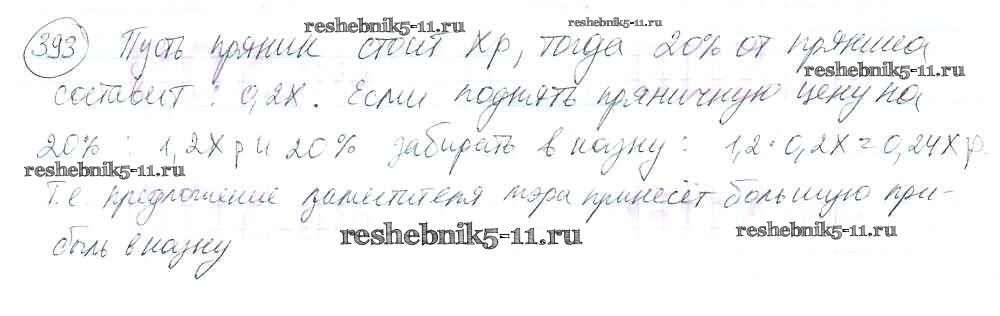 reshebnik5-11.ru
reshebnik5-11.ru
393 Пусть пряник стоит Xр, тогда 20% от пряника
reshebnik5-11.ru
составит: 0,2X. Если поднять пряничную цену на
20%: 1,2X р и 20% забирать в казну: 1,2·0,2X=0,24X р.
reshebnik5-11.ru
Т.е. предложение заместителя мэра принесёт большую при-
reshebnik5-11.ru
reshebnik5-11.ru
быль в казну